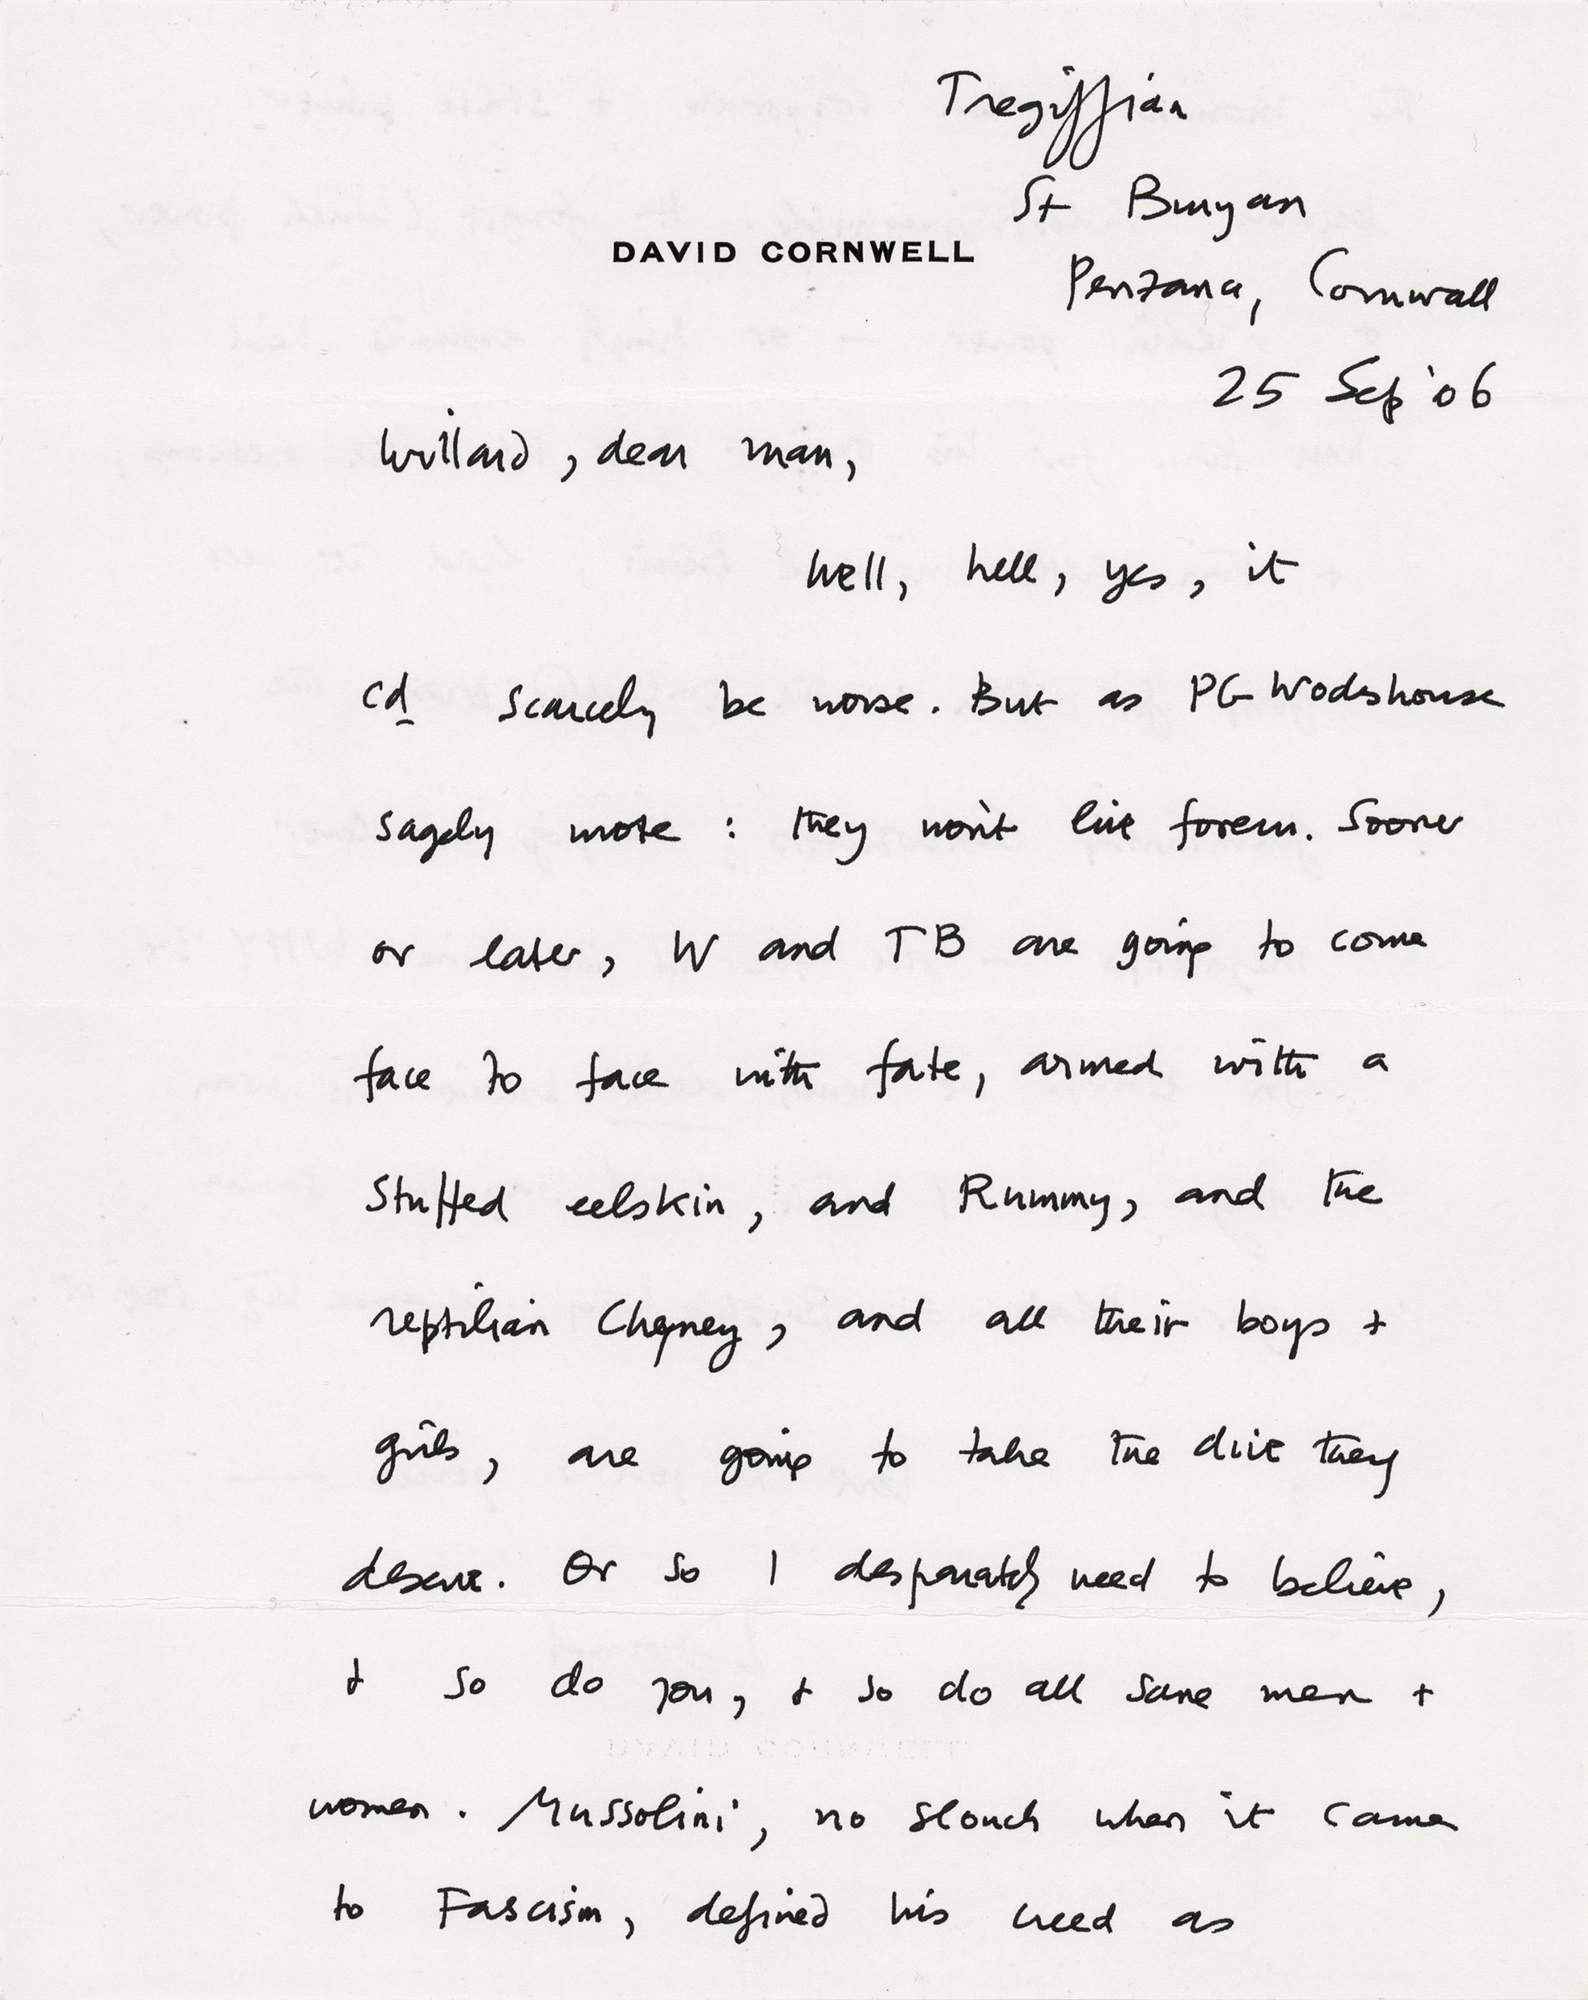 Tregiffian
St Buryan
DAVID CORNWELL
Penzance, Cornwall
25 Sep '06
Willard, dear man,
Well, hell, yes, it
cd scarcely be worse. But as PG Wodehouse
sagely wrote : they won't live forever. Sooner
or later, W and TB are going to come
face to face with fate, armed with a
stuffed eelskin, and Rummy, and the
reptilian Cheyney, and all their boys +
girls, are going to take the dive they
deserve. Or so I desperately need to believe,
+ so do you, + so do all sane men +
women. Mussolini, no slouch when it came
to Fascism, defined his creed as